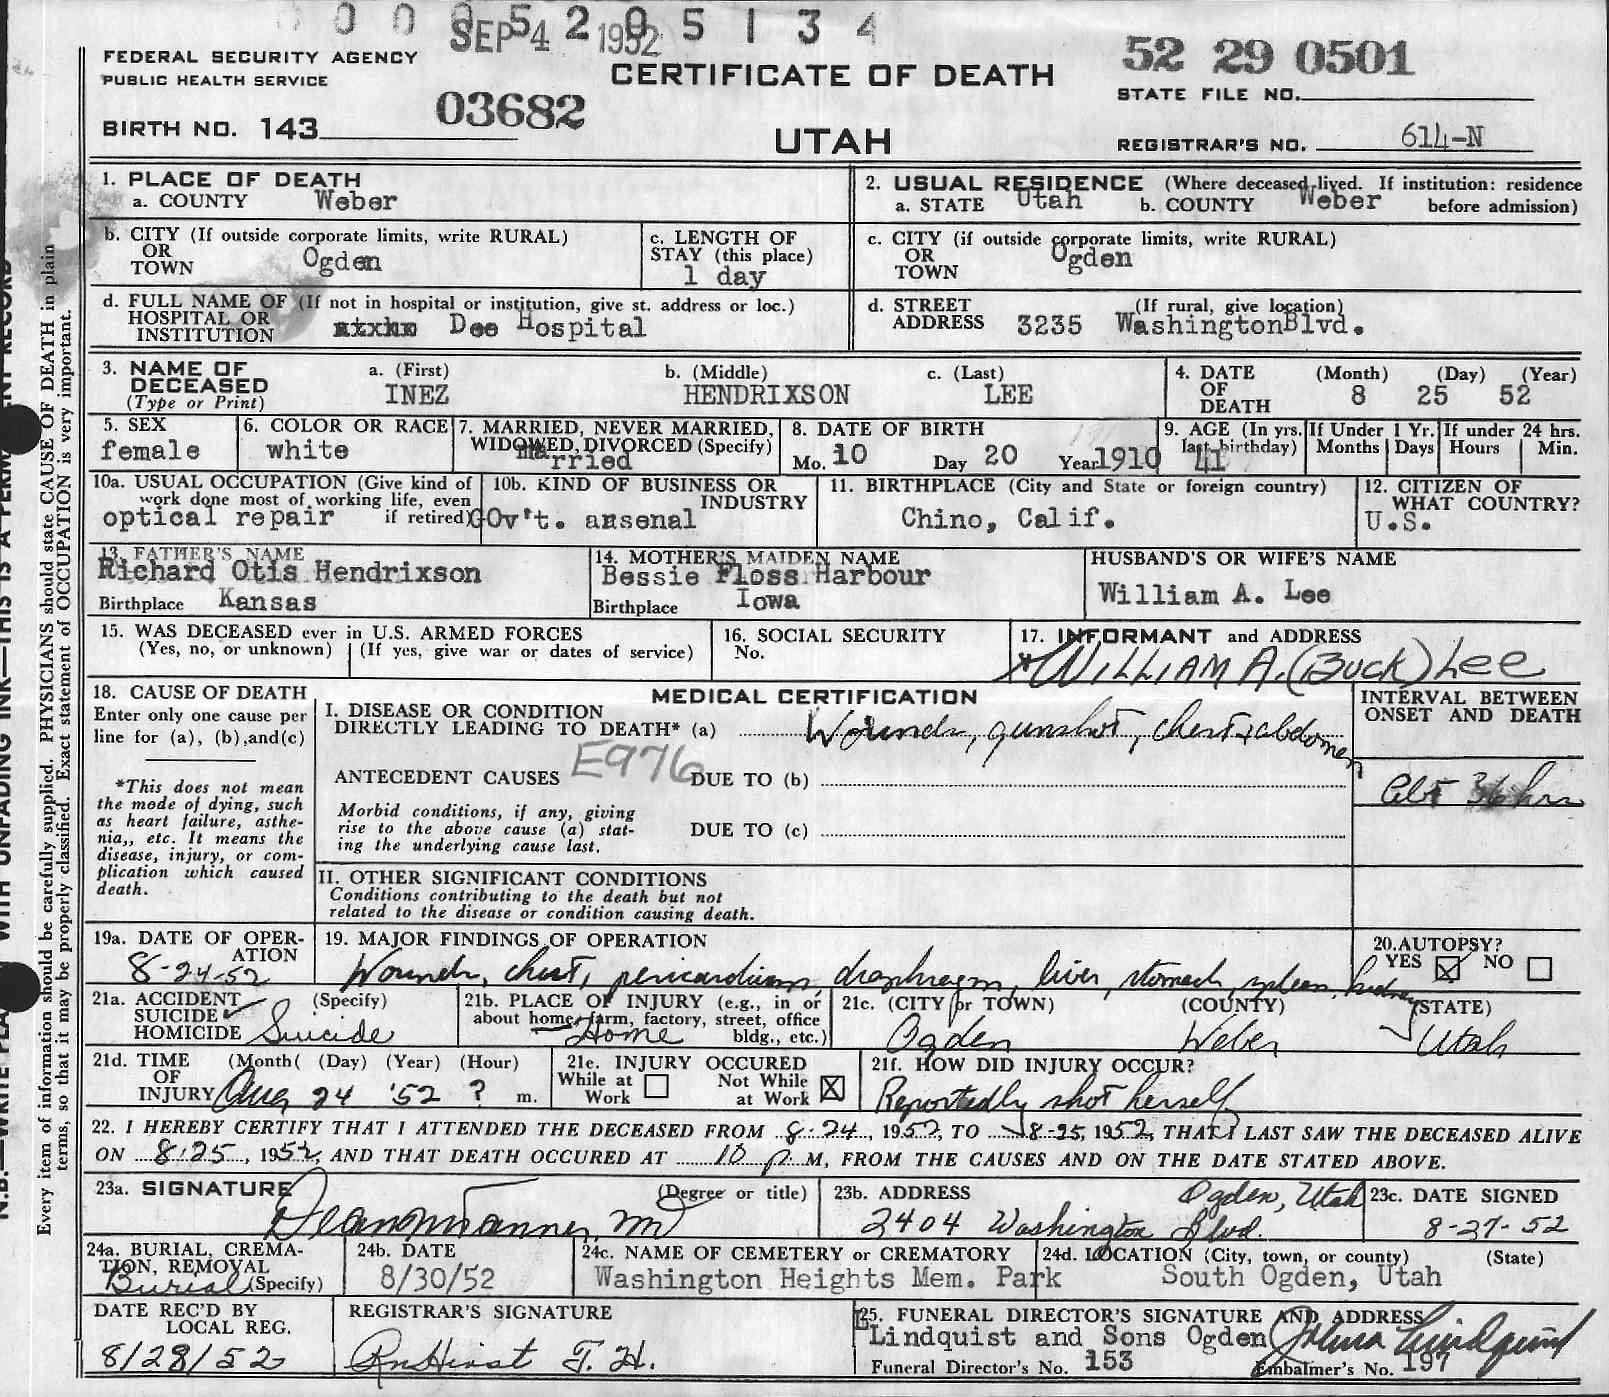 0 0 0 5 2 0 5 1 3 4
SEP 4 1952
52 29 0501
FEDERAL SECURITY AGENCY
PUBLIC HEALTH SERVICE
CERTIFICATE OF DEATH
STATE FILE NO.
03682
BIRTH NO. 143
UTAH
REGISTRAR'S NO. 614-N
1. PLACE OF DEATH
a. COUNTY Weber
2. USUAL RESIDENCE (Where deceased lived. If institution: residence
a. STATE Utah b. COUNTY Weber before admission)
b. CITY (If outside corporate limits, write RURAL)
OR
TOWN Ogden
c. LENGTH OF
STAY (this place)
1 day
c. CITY (if outside corporate limits, write RURAL)
OR
TOWN Ogden
d. FULL NAME OF (If not in hospital or institution, give st. address or loc.)
HOSPITAL OR
INSTITUTION Dee Hospital
d. STREET (If rural, give location)
ADDRESS 3235 Washington Blvd.
3. NAME OF
DECEASED
(Type or Print)
a. (First) b. (Middle) c. (Last)
INEZ HENDRIXSON LEE
4. DATE
OF
DEATH
(Month) (Day) (Year)
8 25 52
5. SEX
female
6. COLOR OR RACE
white
7. MARRIED, NEVER MARRIED,
WIDOWED, DIVORCED (Specify)
married
8. DATE OF BIRTH
Mo. 10 Day 20 Year 1910
9. AGE (In yrs.
last birthday)
41
If Under 1 Yr.
Months Days
If under 24 hrs.
Hours Min.
10a. USUAL OCCUPATION (Give kind of
work done most of working life, even
optical repair if retired)
10b. KIND OF BUSINESS OR
INDUSTRY
GOv't. arsenal
11. BIRTHPLACE (City and State or foreign country)
Chino, Calif.
12. CITIZEN OF
WHAT COUNTRY?
U.S.
13. FATHER'S NAME
Richard Otis Hendrixson
Birthplace Kansas
14. MOTHER'S MAIDEN NAME
Bessie Floss Harbour
Birthplace Iowa
HUSBAND'S OR WIFE'S NAME
William A. Lee
15. WAS DECEASED ever in U.S. ARMED FORCES
(Yes, no, or unknown) (If yes, give war or dates of service)
16. SOCIAL SECURITY
No.
17. INFORMANT and ADDRESS
WILLIAM A. (BUCK) LEE
18. CAUSE OF DEATH
Enter only one cause per
line for (a), (b),and(c)
*This does not mean
the mode of dying, such
as heart failure, asthe-
nia,, etc. It means the
disease, injury, or com-
plication which caused
death.
MEDICAL CERTIFICATION
I. DISEASE OR CONDITION
DIRECTLY LEADING TO DEATH* (a) Wounds, gunshot, chest & abdomen
ANTECEDENT CAUSES E976 DUE TO (b)
Morbid conditions, if any, giving
rise to the above cause (a) stat-
ing the underlying cause last.
DUE TO (c)
INTERVAL BETWEEN
ONSET AND DEATH
Abt 36 hrs
II. OTHER SIGNIFICANT CONDITIONS
Conditions contributing to the death but not
related to the disease or condition causing death.
19a. DATE OF OPER-
ATION
8-24-52
19. MAJOR FINDINGS OF OPERATION
Wounds, chest, pericardium, diaphragm, liver, stomach, spleen, kidney
20.AUTOPSY?
YES NO
21a. ACCIDENT (Specify)
SUICIDE
HOMICIDE Suicide
21b. PLACE OF INJURY (e.g., in or
about home, farm, factory, street, office
Home bldg., etc.)
21c. (CITY or TOWN) (COUNTY) (STATE)
Ogden Weber Utah
21d. TIME (Month( (Day) (Year) (Hour)
OF
INJURY Aug 24 '52 ? m.
21e. INJURY OCCURED
While at Not While
Work at Work
21f. HOW DID INJURY OCCUR?
Reportedly shot herself
22. I HEREBY CERTIFY THAT I ATTENDED THE DECEASED FROM 8-24, 1952, TO 8-25, 1952, THAT I LAST SAW THE DECEASED ALIVE
ON 8-25, 1952, AND THAT DEATH OCCURED AT 10 P M, FROM THE CAUSES AND ON THE DATE STATED ABOVE.
23a. SIGNATURE (Degree or title)
Dean Tanner MD
23b. ADDRESS Ogden, Utah
2404 Washington Blvd.
23c. DATE SIGNED
8-27-52
24a. BURIAL, CREMA-
TION, REMOVAL
Burial (Specify)
24b. DATE
8/30/52
24c. NAME OF CEMETERY or CREMATORY
Washington Heights Mem. Park
24d. LOCATION (City, town, or county) (State)
South Ogden, Utah
DATE REC'D BY
LOCAL REG.
8/28/52
REGISTRAR'S SIGNATURE
25. FUNERAL DIRECTOR'S SIGNATURE AND ADDRESS
Lindquist and Sons Ogden
Funeral Director's No. 153 Embalmer's No. 197
N.B.—WRITE PLAINLY WITH UNFADING INK—THIS IS A PERMANENT RECORD
Every item of information should be carefully supplied. PHYSICIANS should state CAUSE OF DEATH in plain
terms, so that it may be properly classified. Exact statement of OCCUPATION is very important.